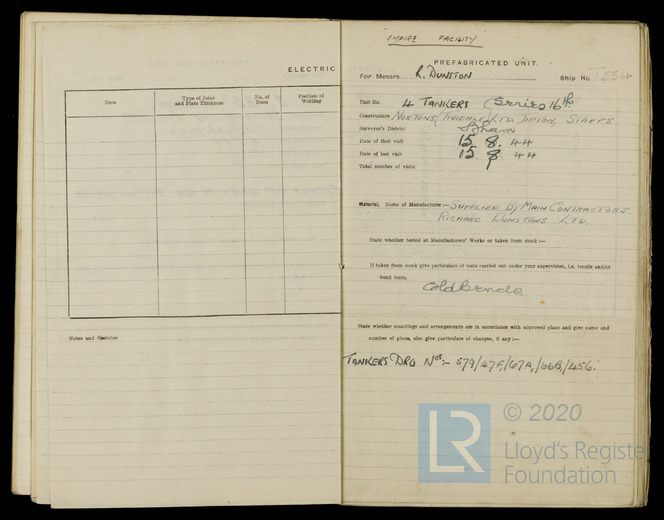 ELECTRIC
Item
Type of Joint and Plate Thickness
No. of Runs
Position of Welding
Notes and Sketches
EMPIRE FACILITY
PREFABRICATED UNIT.
For Messrs. R. DUNSTON Ship No. T554
Unit No. 4 TANKERS (Series 16
Constructors NORTONS (TIVIDALE) LTD. TIPTON, STAFFS
Surveyor's District B'ham
Date of first visit 15. 8. 44
Date of last visit 15. 8. 44
Total number of visits 1
Material, Name of Manufacturer:— SUPPLIED BY MAIN CONTRACTORS
RICHARD DUNSTONS LTD.
State whether tested at Manufacturers' Works or taken from stock:—
If taken from stock give particulars of tests carried out under your supervision, i.e. tensile and/or
bend tests,
Cold bends
State whether scantlings and arrangements are in accordance with approved plans and give name and
number of plans, also give particulars of changes, if any:—
TANKERS DRG Nos:— 579/47F,/67A,/66B,/456.
LR
© 2020
Lloyd's Register
Foundation